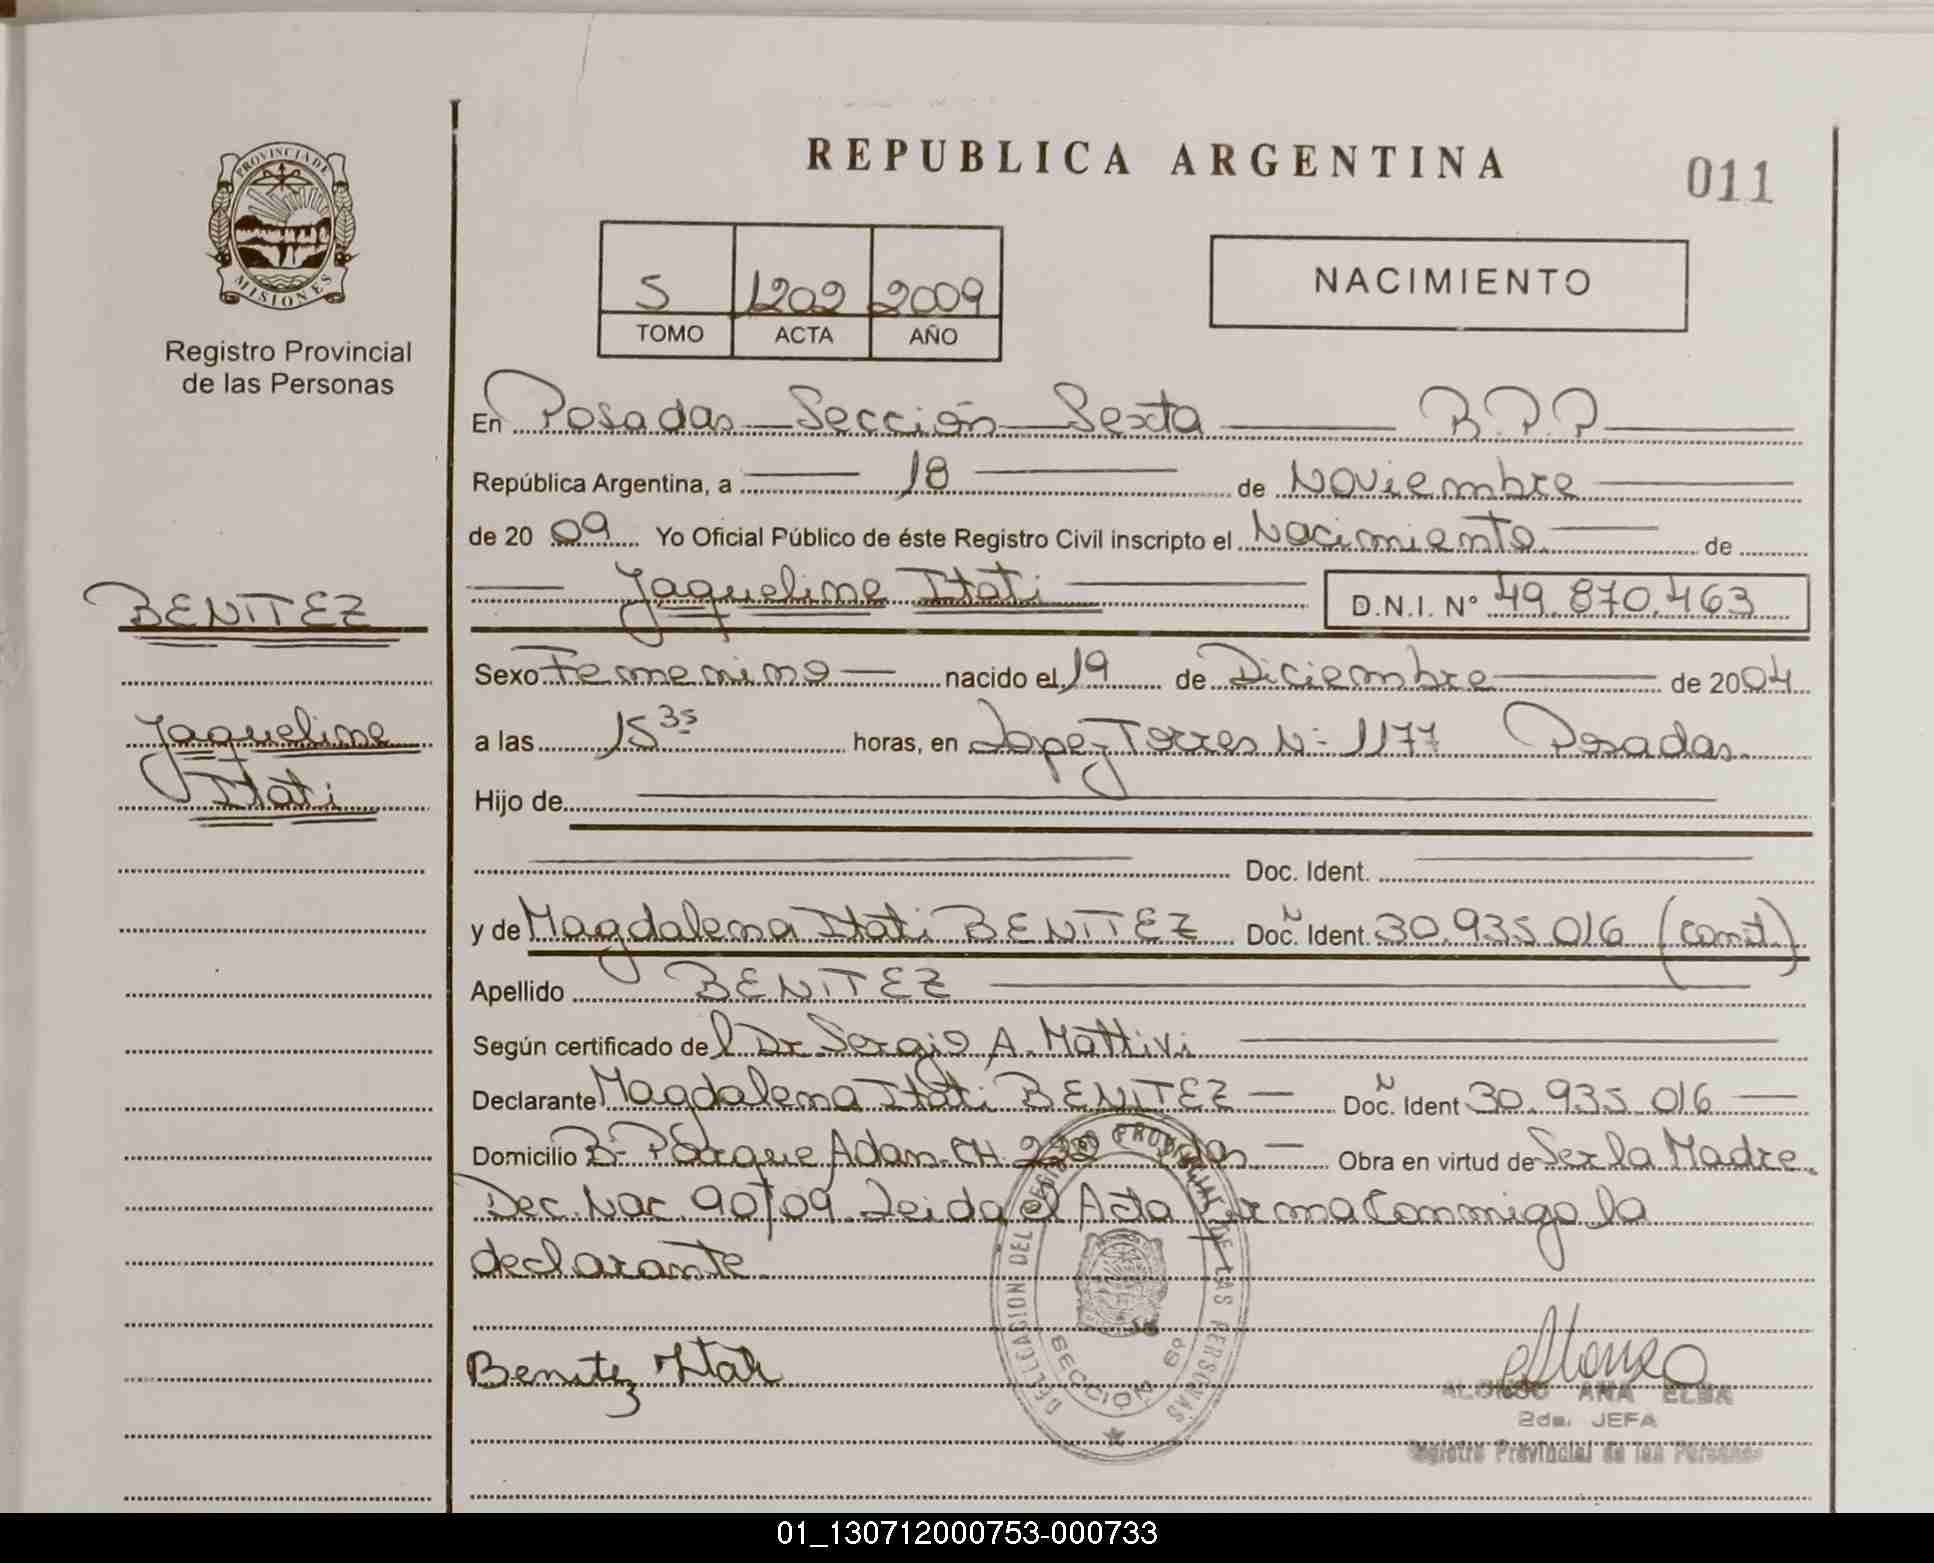 REPUBLICA ARGENTINA
011
PROVINCIA DE
MISIONES
Registro Provincial
de las Personas
5 1202 2009
TOMO ACTA AÑO
NACIMIENTO
En Posadas Sección Sexta B.P.P.
República Argentina, a 18 de Noviembre
de 2009 Yo Oficial Público de éste Registro Civil inscripto el Nacimiento de
Jaqueline Itati D.N.I. N° 49.870.463
BENITEZ
Jaqueline
Itati
Sexo Femenino nacido el 19 de Diciembre de 2004
a las 15 35 horas, en Lopez Torres N° 1177 Posadas
Hijo de
Doc. Ident.
y de Magdalena Itati BENITEZ Doc. Ident. 30.935.016 (cont.)
Apellido BENITEZ
Según certificado del Dr Sergio A. Mattivi
Declarante Magdalena Itati BENITEZ Doc. Ident 30.935.016
Domicilio B° Parque Adam CH. 232 Pdas Obra en virtud de Ser la Madre
Dec. Nac. 90/09 Leida el Acta Firma Conmigo la
declarante
DELEGACION DEL REGISTRO PROVINCIAL DE LAS PERSONAS
SECCION 6°
Benitez Itati
Alonso
ALONSO ANA ELBA
2da. JEFA
Registro Provincial de las Personas
01_130712000753-000733